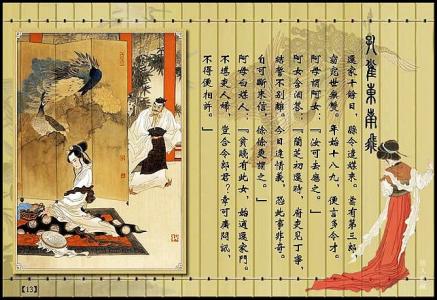 孔雀東南飛
還家十餘日，縣令遣媒來。雲有第三郎，
窈窕世無雙。年始十八九，便言多令才。
阿母謂阿女：『汝可去應之。』
阿女含淚答：『蘭芝初還時，府吏見丁寧，
結誓不別離。今日違情義，恐此事非奇。
自可斷來信，徐徐更謂之。』
阿母白媒人：『貧賤有此女，始適還家門。
不堪吏人婦，豈合令郎君？幸可廣問訊，
不得便相許。』
【13】